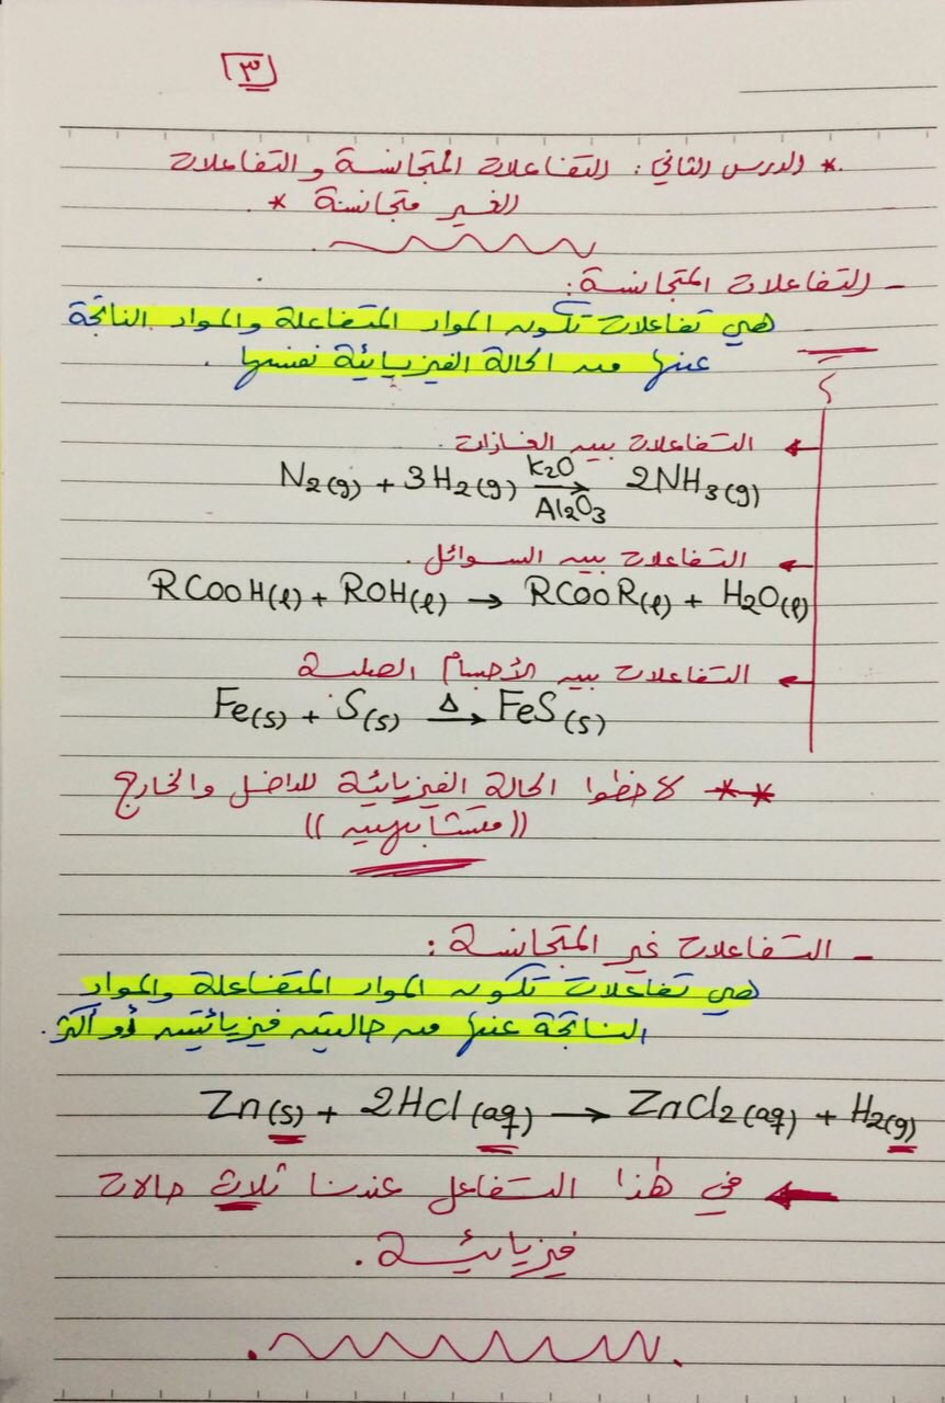 [٣]
* الدرس الثاني: التفاعلات المتجانسة و التفاعلات
الغير متجانسة *
- التفاعلات المتجانسة:
هي تفاعلات تكون المواد المتفاعلة والمواد الناتجة
عنها من الحالة الفيزيائية نفسها.
← التفاعلات بين الغازات.
N₂(g) + 3H₂(g) K₂O → Al₂O₃ 2NH₃(g)
← التفاعلات بين السوائل.
RCOOH(l) + ROH(l) → RCOOR(l) + H₂O(l)
← التفاعلات بين الأجسام الصلبة
Fe(s) + S(s) Δ→ FeS(s)
** لاحظوا الحالة الفيزيائية للداخل والخارج
((متشابهين))
- التفاعلات غير المتجانسة:
هي تفاعلات تكون المواد المتفاعلة والمواد
الناتجة عنها من حالتين فيزيائيتين أو أكثر.
Zn(s) + 2HCl(aq) → ZnCl₂(aq) + H₂(g)
← في هذا التفاعل عندنا ثلاث حالات
فيزيائية.